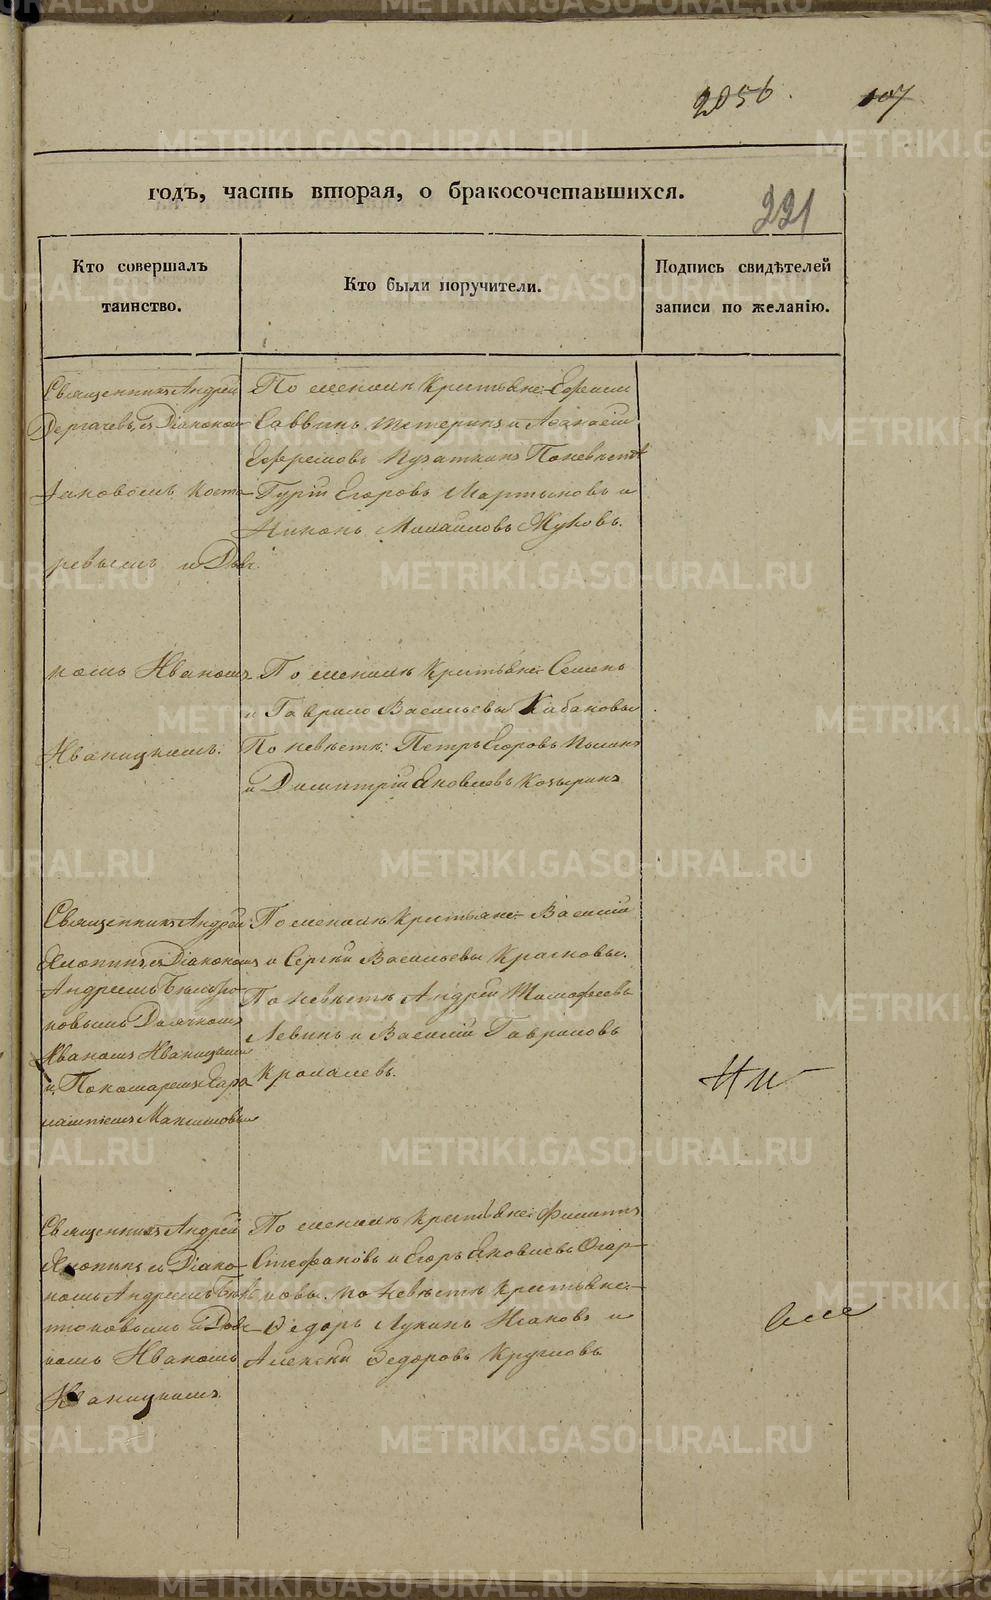 2056. 107
годъ, часть вторая, о бракосочетавшихся.
221
Кто совершалъ
таинство.
Кто были поручители.
Подпись свидѣтелей
записи по желанію.
Священникъ Андрей
Дергачевъ, съ Діакономъ
Іаковомъ Косто-
ревымъ и Дьяч
комъ Иваномъ
Иваницкимъ.
По женихѣ Крестьяне: Ефремъ
Саввинъ Тетеринъ и Афанасій
Ефремовъ Пузаткинъ По невѣстѣ
Гурій Егоровъ Мартыновъ и
Никонъ Михайловъ Жуковъ.
По женихѣ Крестьяне: Семенъ
и Гаврило Васильевы Кабановы
По невѣстѣ: Петръ Егоровъ
и Димитрій Яковлевъ Козыринъ
Священникъ Андрей
съ Діакономъ
Андреемъ
Дьячкомъ
Иваномъ Иваницкимъ
и Пономаремъ
Максимовымъ
По женихѣ Крестьяне: Василій
и Сергѣй Васильевы Красновы.
По невѣстѣ Андрей Тимофеевъ
Левинъ и Василій Гавриловъ
Кралалевъ.
Священникъ Андрей
съ Діако-
номъ Андреемъ
и Дьяч
комъ Иваномъ
Иваницкимъ.
По женихѣ Крестьяне: Филиппъ
Стефановъ и Егоръ Яковлевъ Огар-
ковы. По невѣстѣ Крестьяне:
Ѳедоръ Лукинъ Исаковъ и
Алексѣй Ѳедоровъ Кругловъ
METRIKI.GASO-URAL.RU